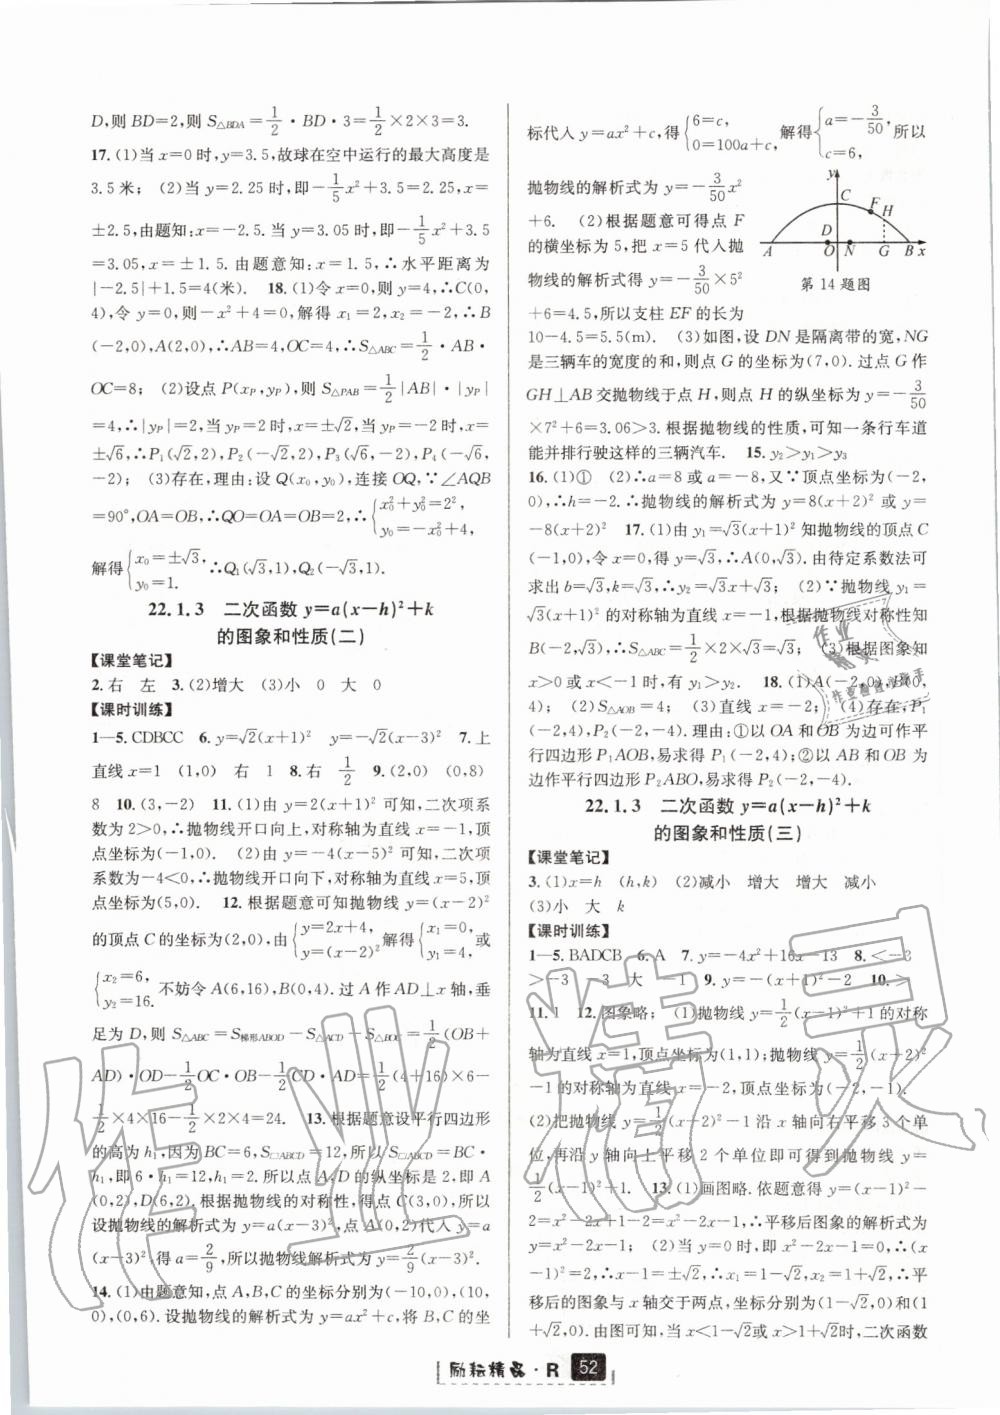 D,则 BD=2,则 S△BDA=1/2·BD·3=1/2×2×3=3.
17.(1)当 x=0时,y=3.5,故球在空中运行的最大高度是
3.5米; (2)当 y=2.25时,即-1/5x²+3.5=2.25,x=
±2.5,由题知:x=-2.5. 当 y=3.05时,即-1/5x²+3.5
=3.05,x=±1.5. 由题意知:x=1.5,∴水平距离为
|-2.5|+1.5=4(米). 18.(1)令 x=0,则 y=4,∴C(0,
4),令 y=0,则-x²+4=0,解得 x₁=2,x₂=-2,∴B
(-2,0),A(2,0),∴AB=4,OC=4,∴S△ABC=1/2·AB·
OC=8; (2)设点 P(xP,yP),则 S△PAB=1/2|AB|·|yP|
=4,∴|yP|=2,当 yP=2时,x=±√2,当 yP=-2时,x=
±√6,∴P₁(√2,2),P₂(-√2,2),P₃(√6,-2),P₄(-√6,
-2); (3)存在,理由:设 Q(x₀,y₀),连接 OQ,∵∠AQB
=90°,OA=OB,∴QO=OA=OB=2,∴{x₀²+y₀²=2², y₀=-x₀²+4,
解得{x₀=±√3, y₀=1. ∴Q₁(√3,1),Q₂(-√3,1).
22.1.3 二次函数 y=a(x-h)²+k
的图象和性质(二)
【课堂笔记】
2.右 左 3.(2)增大 (3)小 0 大 0
【课时训练】
1—5.CDBCC 6.y=√2(x+1)² y=-√2(x-3)² 7.上
直线 x=1 (1,0) 右 1 8.右 1/2 9.(2,0) (0,8)
8 10.(3,-2) 11.(1)由 y=2(x+1)² 可知,二次项系
数为2>0,∴抛物线开口向上,对称轴为直线 x=-1,顶
点坐标为(-1,0). (2)由 y=-4(x-5)² 可知,二次项
系数为-4<0,∴抛物线开口向下,对称轴为直线 x=5,顶
点坐标为(5,0). 12.根据题意可知抛物线 y=(x-2)²
的顶点 C 的坐标为(2,0),由{y=2x+4, y=(x-2)² 解得{x₁=0, y₁=4, 或
{x₂=6, y₂=16. 不妨令 A(6,16),B(0,4). 过 A 作 AD⊥x 轴,垂
足为 D,则 S△ABC=S梯形ABOD-S△ACD-S△BOC=1/2(OB+
AD)·OD-1/2OC·OB-1/2CD·AD=1/2(4+16)×6-
1/2×4×16-1/2×2×4=24. 13.根据题意设平行四边形
的高为 h₁,因为 BC=6,S▱ABCD=12,所以 S▱ABCD=BC·
h₁,即6·h₁=12,h₁=2. 所以点 A,D 的纵坐标是2,即 A
(0,2),D(6,2),根据抛物线的对称性,得点 C(3,0),所以
设抛物线的解析式为 y=a(x-3)²,点 A(0,2)代入 y=a
(x-3)²,得 a=2/9,所以抛物线解析式为 y=2/9(x-3)².
14.(1)由题意知,点 A,B,C 的坐标分别为(-10,0),(10,
0),(0,6). 设抛物线的解析式为 y=ax²+c,将 B,C 的坐
标代入 y=ax²+c,得{6=c, 0=100a+c, 解得{a=-3/50, c=6, 所以
抛物线的解析式为 y=-3/50x²
+6. (2)根据题意可得点 F
的横坐标为5,把 x=5代入抛
物线的解析式得 y=-3/50×5²
+6=4.5,所以支柱 EF 的长为
y C F H D A O N G B x
第14题图
10-4.5=5.5(m). (3)如图,设 DN 是隔离带的宽,NG
是三辆车的宽度的和,则点 G 的坐标为(7,0). 过点 G 作
GH⊥AB 交抛物线于点 H,则点 H 的纵坐标为 y=-3/50
×7²+6=3.06>3. 根据抛物线的性质,可知一条行车道
能并排行驶这样的三辆汽车. 15.y₂>y₁>y₃
16.(1)① (2)∴a=8或 a=-8,又∵顶点坐标为(-2,
0),∴h=-2. ∴抛物线的解析式为 y=8(x+2)² 或 y=
-8(x+2)² 17.(1)由 y₁=√3(x+1)² 知抛物线的顶点 C
(-1,0),令 x=0,得 y=√3,∴A(0,√3). 由待定系数法可
求出 b=√3,k=√3,∴y₂=√3x+√3; (2)∵抛物线 y₁=
√3(x+1)² 的对称轴为直线 x=-1,根据抛物线对称性知
B(-2,√3),∴S△ABC=1/2×2×√3=√3; (3)根据图象知
x>0或 x<-1时,有 y₁>y₂. 18.(1)A(-2,0),B(0,
4); (2)S△AOB=4; (3)直线 x=-2; (4)存在,P₁
(-2,4),P₂(-2,-4). 理由:①以 OA 和 OB 为边可作平
行四边形 P₁AOB,易求得 P₁(-2,4);②以 AB 和 OB 为
边作平行四边形 P₂ABO,易求得 P₂(-2,-4).
22.1.3 二次函数 y=a(x-h)²+k
的图象和性质(三)
【课堂笔记】
3.(1)x=h (h,k) (2)减小 增大 增大 减小
(3)小 大 k
【课时训练】
1—5.BADCB 6.A 7.y=-4x²+16x-13 8.<-3
>-3 -3 大 -1 9.y=-(x+1)²-2 10.>
11.1 12.图象略; (1)抛物线 y=1/2(x-1)²+1的对称
轴为直线 x=1,顶点坐标为(1,1);抛物线 y=1/2(x+2)²
-1的对称轴为直线 x=-2,顶点坐标为(-2,-1).
(2)把抛物线 y=1/2(x+2)²-1沿 x 轴向右平移3个单
位,再沿 y 轴向上平移2个单位即可得到抛物线 y=
1/2(x-1)²+1. 13.(1)画图略. 依题意得 y=(x-1)²-
2=x²-2x+1-2=x²-2x-1,∴平移后图象的解析式为
y=x²-2x-1; (2)当 y=0时,x²-2x-1=0,∴(x
-1)²=2,x-1=±√2,∴x₁=1-√2,x₂=1+√2,∴平
移后的图象与 x 轴交于两点,坐标分别为(1-√2,0)和(
1+√2,0). 由图可知,当 x<1-√2或 x>1+√2时,二次函数
励耘精品·R 52
作业精灵